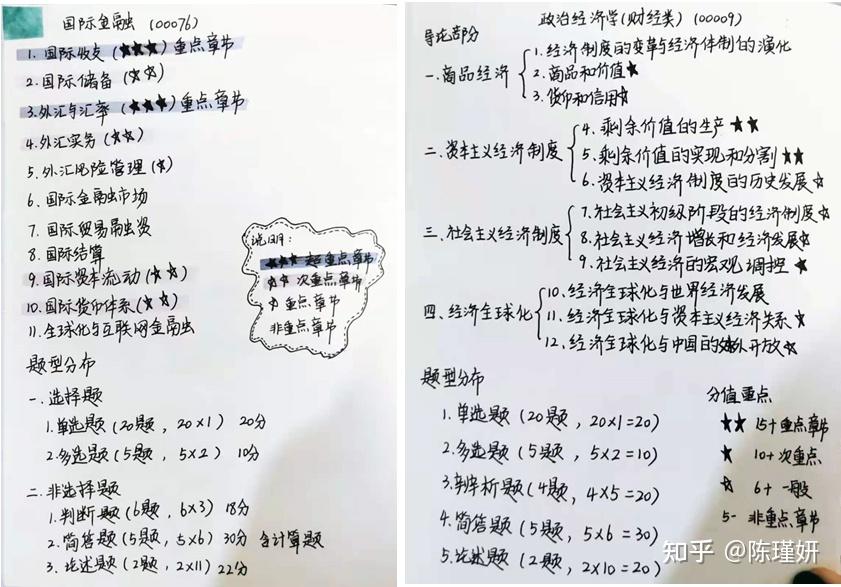 国际金融 (00076)
1. 国际收支 (★★★) 重点章节
2. 国际储备 (☆☆)
3. 外汇与汇率 (★★★) 重点章节
4. 外汇实务 (☆☆)
5. 外汇风险管理 (☆)
6. 国际金融市场
7. 国际贸易融资
8. 国际结算
9. 国际资本流动 (☆☆)
10. 国际货币体系 (☆☆)
11. 全球化与互联网金融
说明:
★★★ 超重点章节
☆☆ 次重点章节
☆ 重点章节
非重点章节
题型分布
一. 选择题
1. 单选题 (20题, 20×1) 20分
2. 多选题 (5题, 5×2) 10分
二. 非选择题
1. 判断题 (6题, 6×3) 18分
2. 简答题 (5题, 5×6) 30分 含计算题
3. 论述题 (2题, 2×11) 22分
政治经济学(财经类) (00009)
导论部分
一. 商品经济
1. 经济制度的变革与经济体制的演化
2. 商品和价值★
3. 货币和信用☆
二. 资本主义经济制度
4. 剩余价值的生产★★
5. 剩余价值的实现和分割★★
6. 资本主义经济制度的历史发展☆
三. 社会主义经济制度
7. 社会主义初级阶段的经济制度☆
8. 社会主义经济增长和经济发展☆
9. 社会主义经济的宏观调控 ★
四. 经济全球化
10. 经济全球化与世界经济发展
11. 经济全球化与资本主义经济关系☆
12. 经济全球化与中国的对外开放☆
题型分布
1. 单选题 (20题, 20×1=20)
2. 多选题 (5题, 5×2=10)
3. 辨析题 (4题, 4×5=20)
4. 简答题 (5题, 5×6=30)
5. 论述题 (2题, 2×10=20)
分值重点
★★ 15+ 重点章节
★ 10+ 次重点
☆ 6+ 一般
5- 非重点章节
知乎 @陈瑾妍